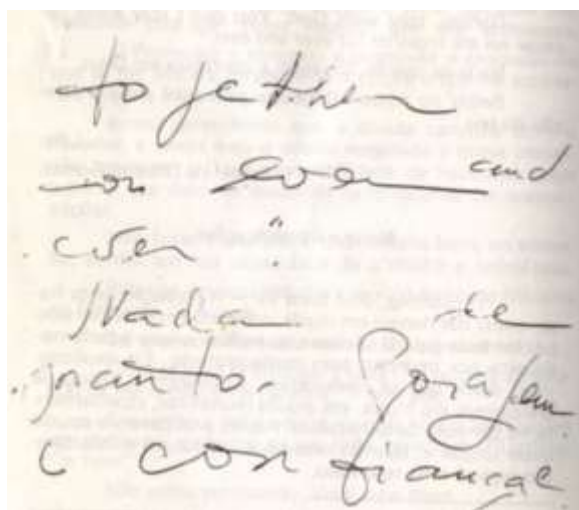 together
on ever and
ever".
Nada de
pranto. Coragem
e confiança